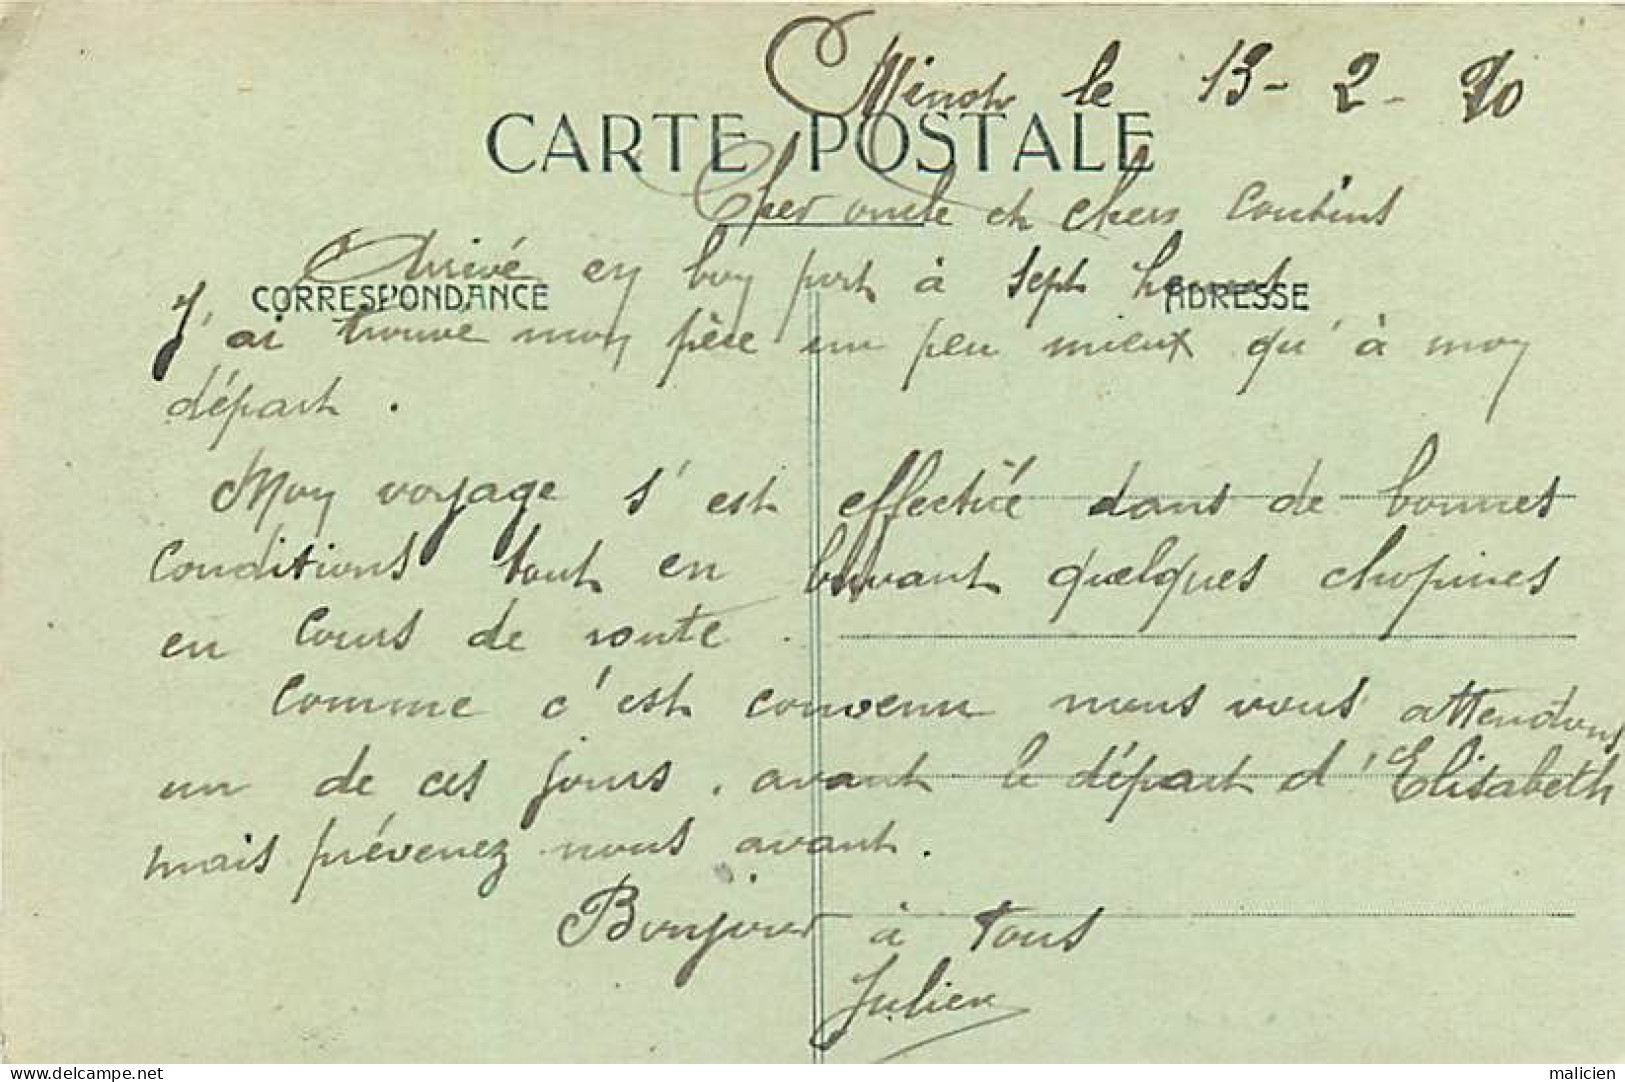 Minot le 13-2-20
CARTE POSTALE
Cher oncle et chers cousins
Arrivé en bon port à sept heures
CORRESPONDANCE
ADRESSE
J'ai trouvé mon père un peu mieux qu'à mon
départ.
Mon voyage s'est effectué dans de bonnes
conditions tout en buvant quelques chopines
en cours de route.
Comme c'est convenu nous vous attendons
un de ces jours. avant le départ d'Elisabeth
mais prévenez nous avant.
Bonjour à tous
Julien
delcampe.net
malicien